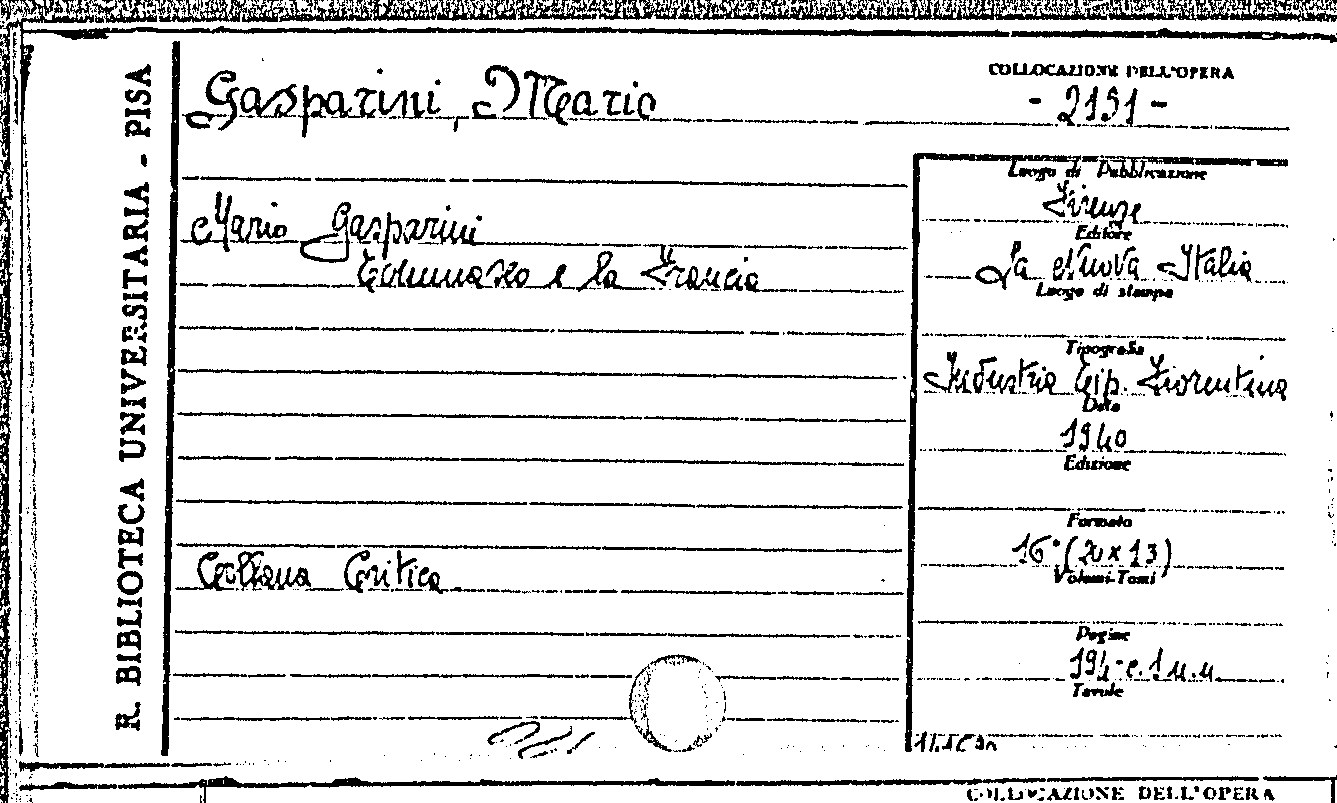 R. BIBLIOTECA UNIVERSITARIA - PISA
Gasparini, Mario
COLLOCAZIONE DELL'OPERA
- 2191 -
Mario Gasparini
Tommaseo e la Francia
Collana Critica
Luogo di Pubblicazione
Firenze
Editore
La Nuova Italia
Luogo di stampa
Tipografia
Industria Tip. Fiorentina
Data
1940
Edizione
Formato
16° (20 x 13)
Volumi-Tomi
Pagine
194-c.1 n.n.
Tavole
COLLOCAZIONE DELL'OPERA